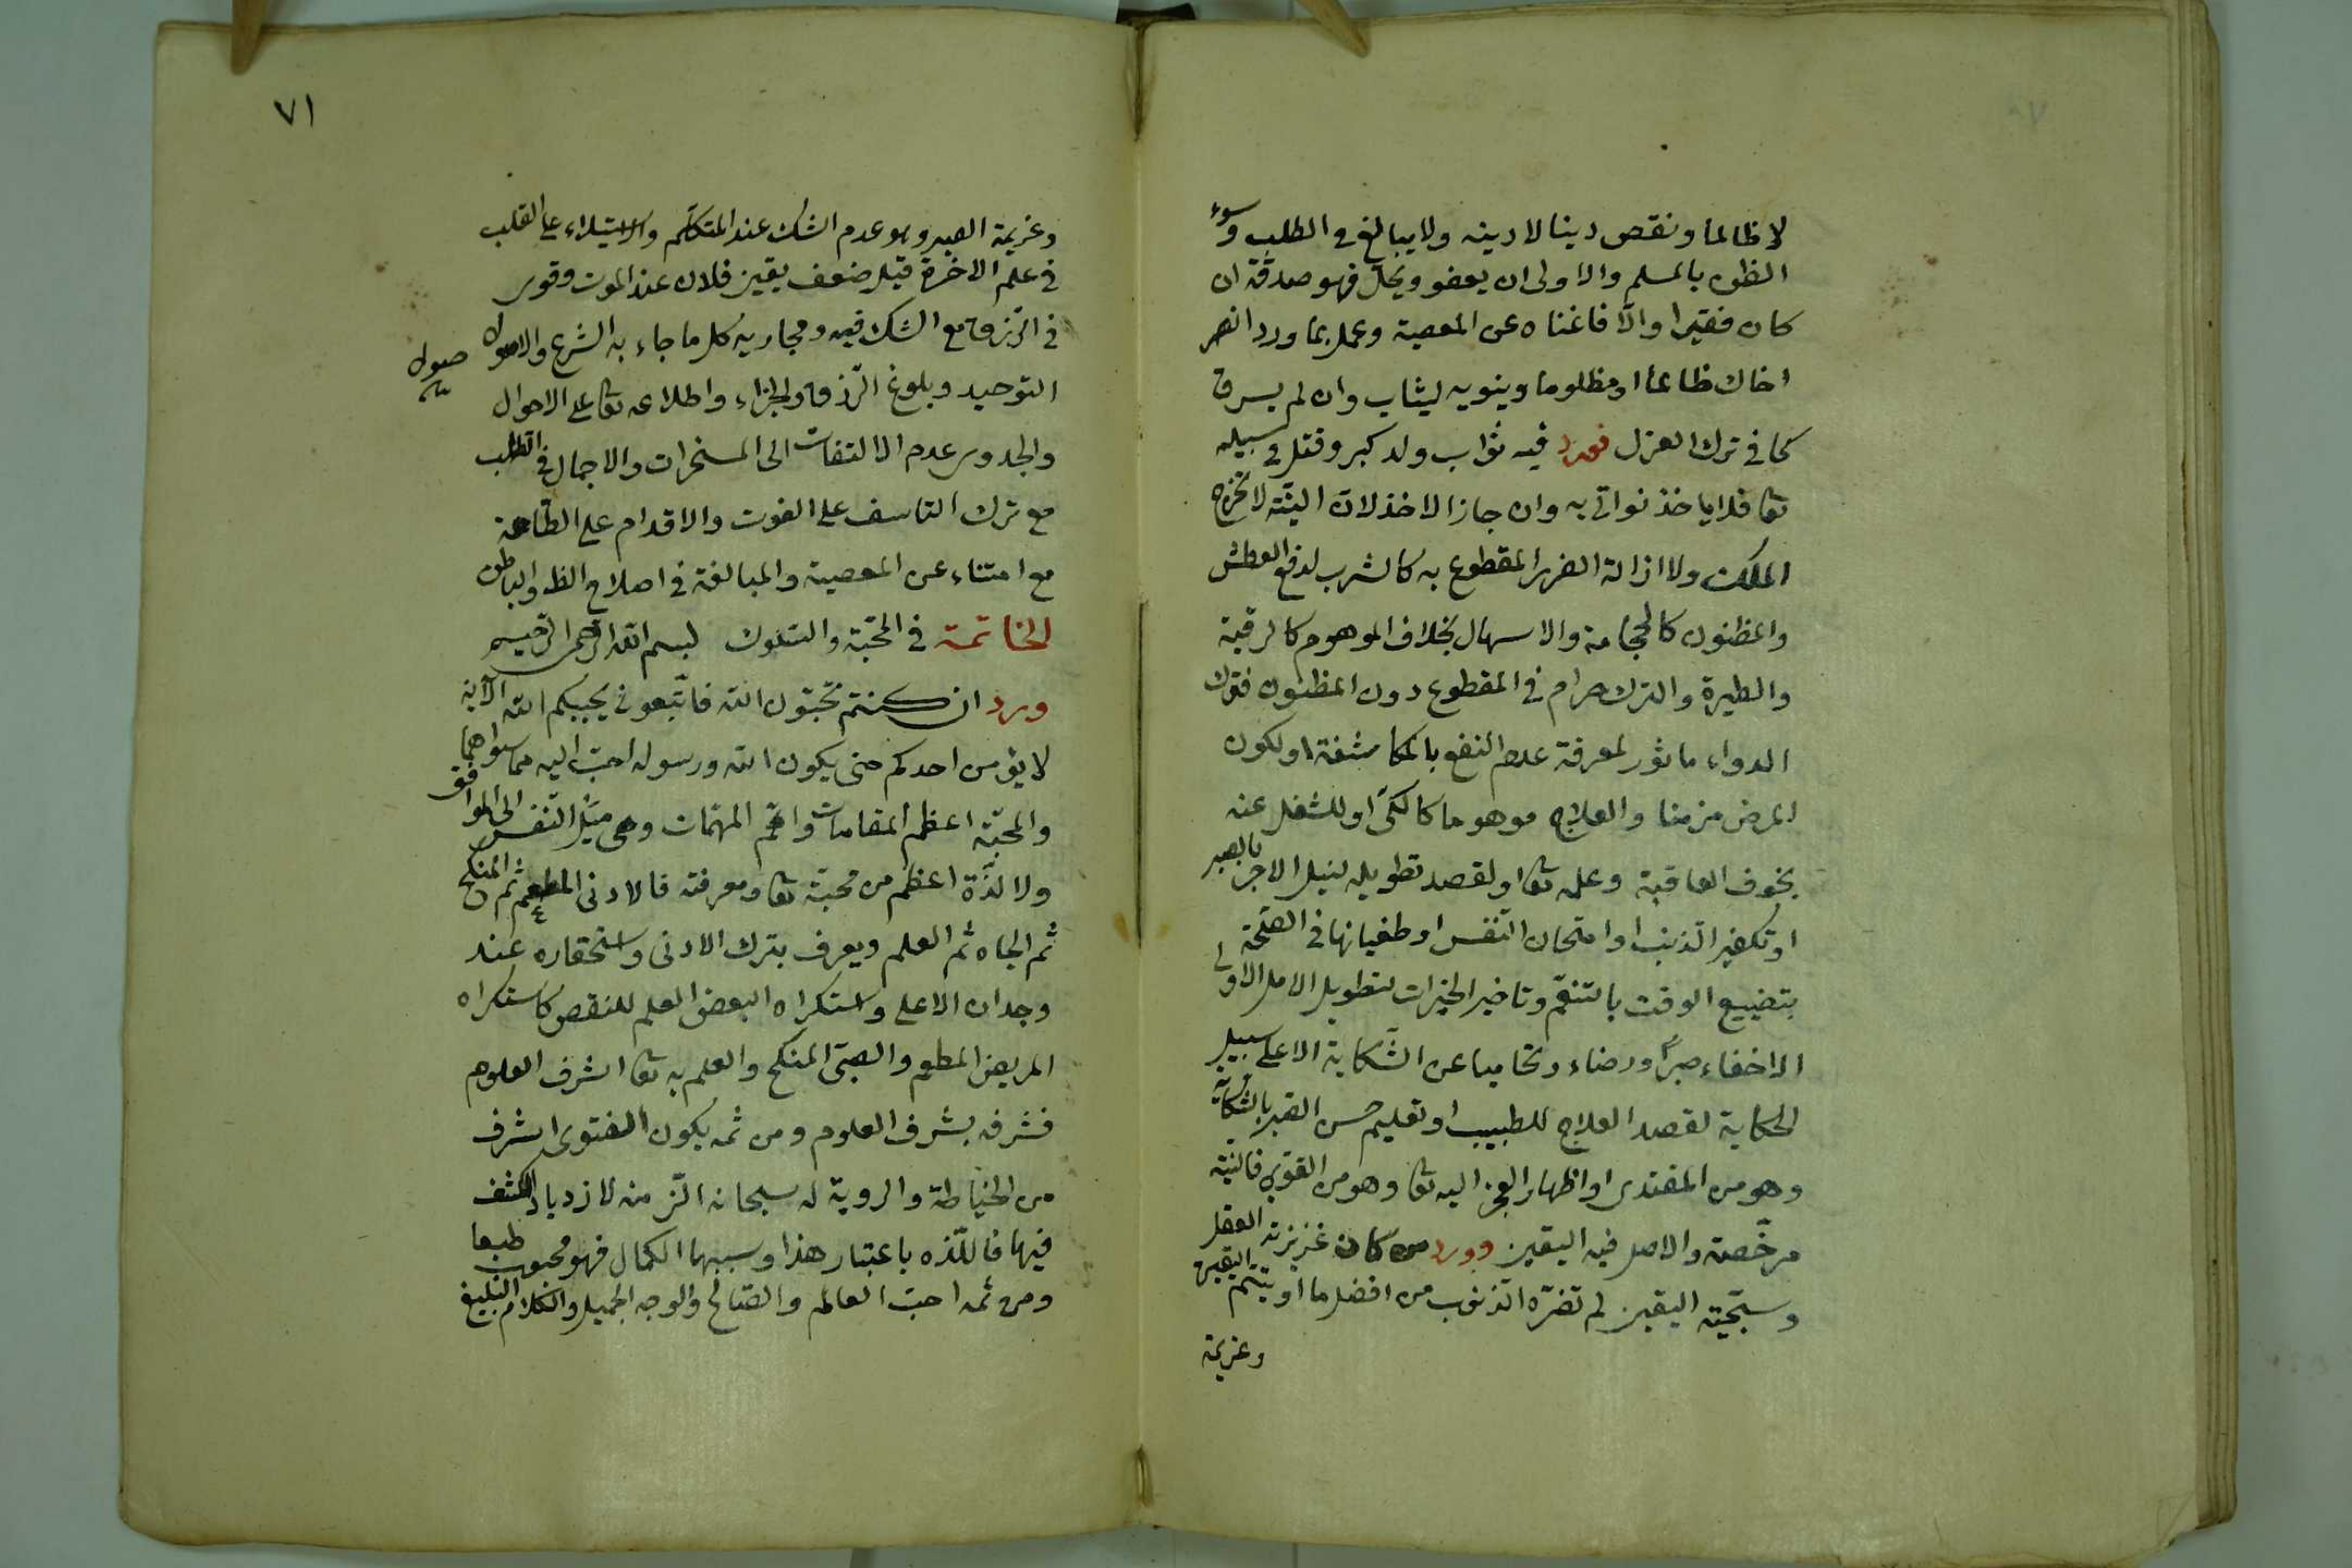 لا ظالما ونقص دينا لا دينه ولا يبالغ في الطلب وسوء
الظن بالمسلم والاولى ان يعفو ويحلّ فهو صدقة ان
كان فقيرا والّا فاغناه عن المعصية وعمل بما ورد انصر
اخاك ظالما او مظلوما وينويه ليثاب وان لم يسرق
كما في ترك العزل فورد فيه ثواب ولد كبر وقتل في سبيله
تعا فلا ياخذ نواتى به وان جاز الاخذ لان النيّة لا تخرج
الملك ولا ازالة الضرر المقطوع به كالشرب لدفع العطش
والمظنون كالحجامة والاسهال بخلاف الموهوم كالرقية
والطيرة والترك حرام في المقطوع دون المظنون فترك
الدواء ماثور لمعرفة عدم النفع بالمكاشفة او لكون
المرض مزمنا والعلاج موهوما كالكىّ او للشغل عنه
بخوف العاقبة وعلمه تعا او لقصد تطويله لنيل الاجر بالصبر
او تكفير الذنب او امتحان النفس او طغيانها في الصّحّة
بتضييع الوقت بالتنعّم وتاخير الخيرات لتطويل الامل الاولى
الاخفاء صبرًا ورضاء وتحاميا عن الشّكاية الا على سبيل
الحكاية لقصد العلاج للطبيب او تعليم حسن الصبر بالشّكاية
وهو من المقتدى او اظهار العجز اليه تعا وهو من القوى فالنيّة
مرخّصة والاصل فيه اليقين وورد من كان غريزته العقل
وسجيّته اليقين لم تضرّه الذنوب من افضل ما اوتيتم اليقين
وعزيمة
٧١
وعزيمة الصبر وهو عدم الشك عند المتكلّم والاستيلاء على القلب
في علم الاخرة قيل ضعف يقين فلان عند الموت وقوى
في الرّزق مع الشك فيه ومجاريه كل ما جاء به الشرع والاصول
صول
التوحيد وبلوغ الرّزق والجزاء واطلاعه تعا على الاحوال
والجدوى عدم الالتفات الى المسخرات والاجمال في الطلب
مع ترك التاسف على الفوت والاقدام على الطّاعة
مع امتناء عن المعصية والمبالغة في اصلاح الظ والباطن
الخاتمة في المحبّة والسّلوك بسم الله الرّحمن الرّحيم
ورد ان كنتم تحبّون الله فاتّبعونى يحببكم الله الآية
لا يؤمن احدكم حتى يكون الله ورسوله احبّ اليه مما سواهما
والمحبّة اعظم المقامات واهمّ المهمّات وهى ميل النّفس الى الموافق
ولا لذّة اعظم من محبّته تعا ومعرفته فالادنى المطعم ثم المنكح
ثم الجاه ثم العلم ويعرف بترك الادنى واستحقاره عند
وجدان الاعلى واستكراه البعض العلم للنقص كاستكراه
المريض المطعم والصبىّ المنكح والعلم به تعا اشرف العلوم
فشرفه بشرف العلوم ومن ثمه يكون الفتوى اشرف
من الخياطة والروية له سبحانه الذّ منه لازدياد الكشف
فيها فاللّذه باعتبار هذا وسببها الكمال فهو محبوب طبعا
ومن ثمه احبّ العالم والصّالح والوجه الجميل والكلام البليغ